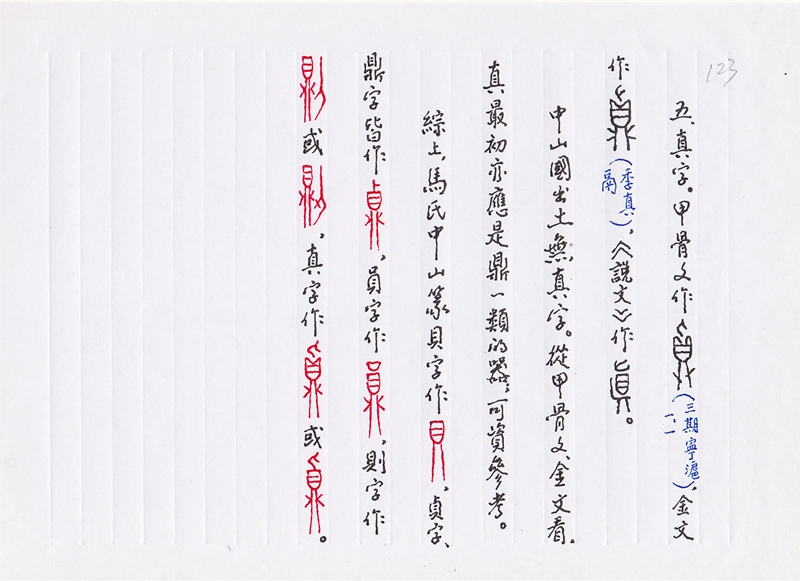 123
五、真字。甲骨文作(三期寧滬一、一)，金文
作(季真鬲)，《說文》作。
中山國出土無真字。從甲骨文、金文看，
真最初亦應是鼎一類的器，可資參考。
綜上，馬氏中山篆貝字作，貞字、
鼎字皆作，員字作，則字作
或，真字作或。